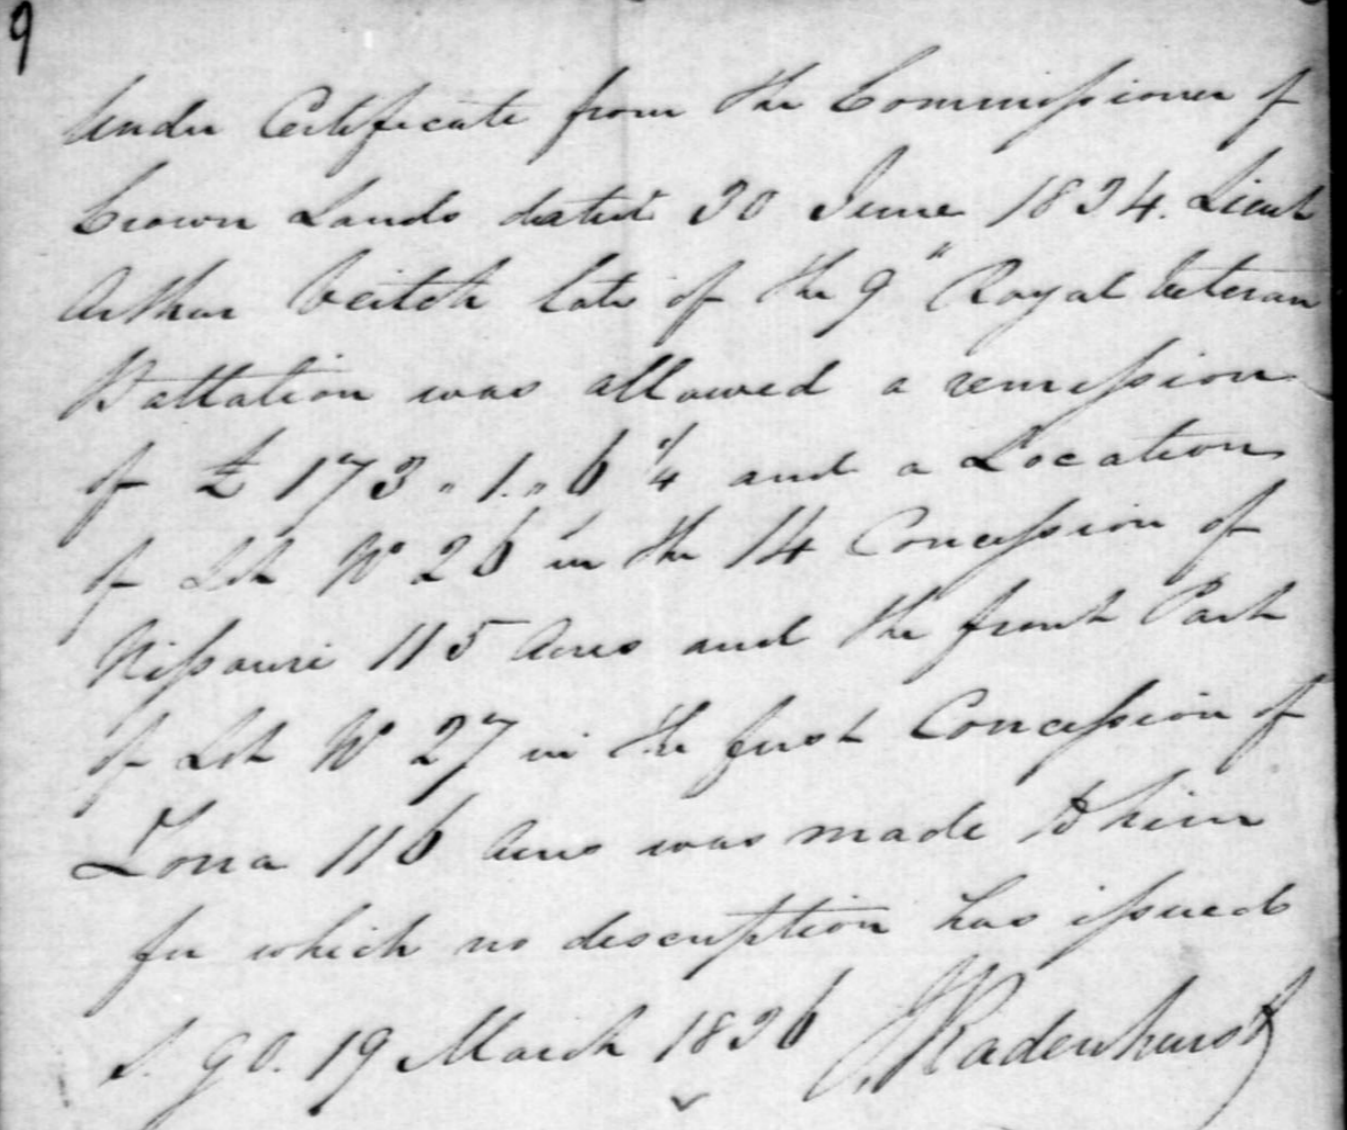 9
Under Certificate from the Commissioner of
Crown Lands dated 30 June 1834. Lieut
Arthur Veitch late of the 9" Royal Veteran
Battalion was allowed a remission
of £173.. 1.. 6 1/4 and a Location
of Lot No 26 in the 14 Concession of
Nissouri 115 Acres and the front Part
of Lot No 27 in the first Concession of
Zorra 116 Acres was made to him
for which no description has issued
S. G O. 19 March 1836 J Radenhurst